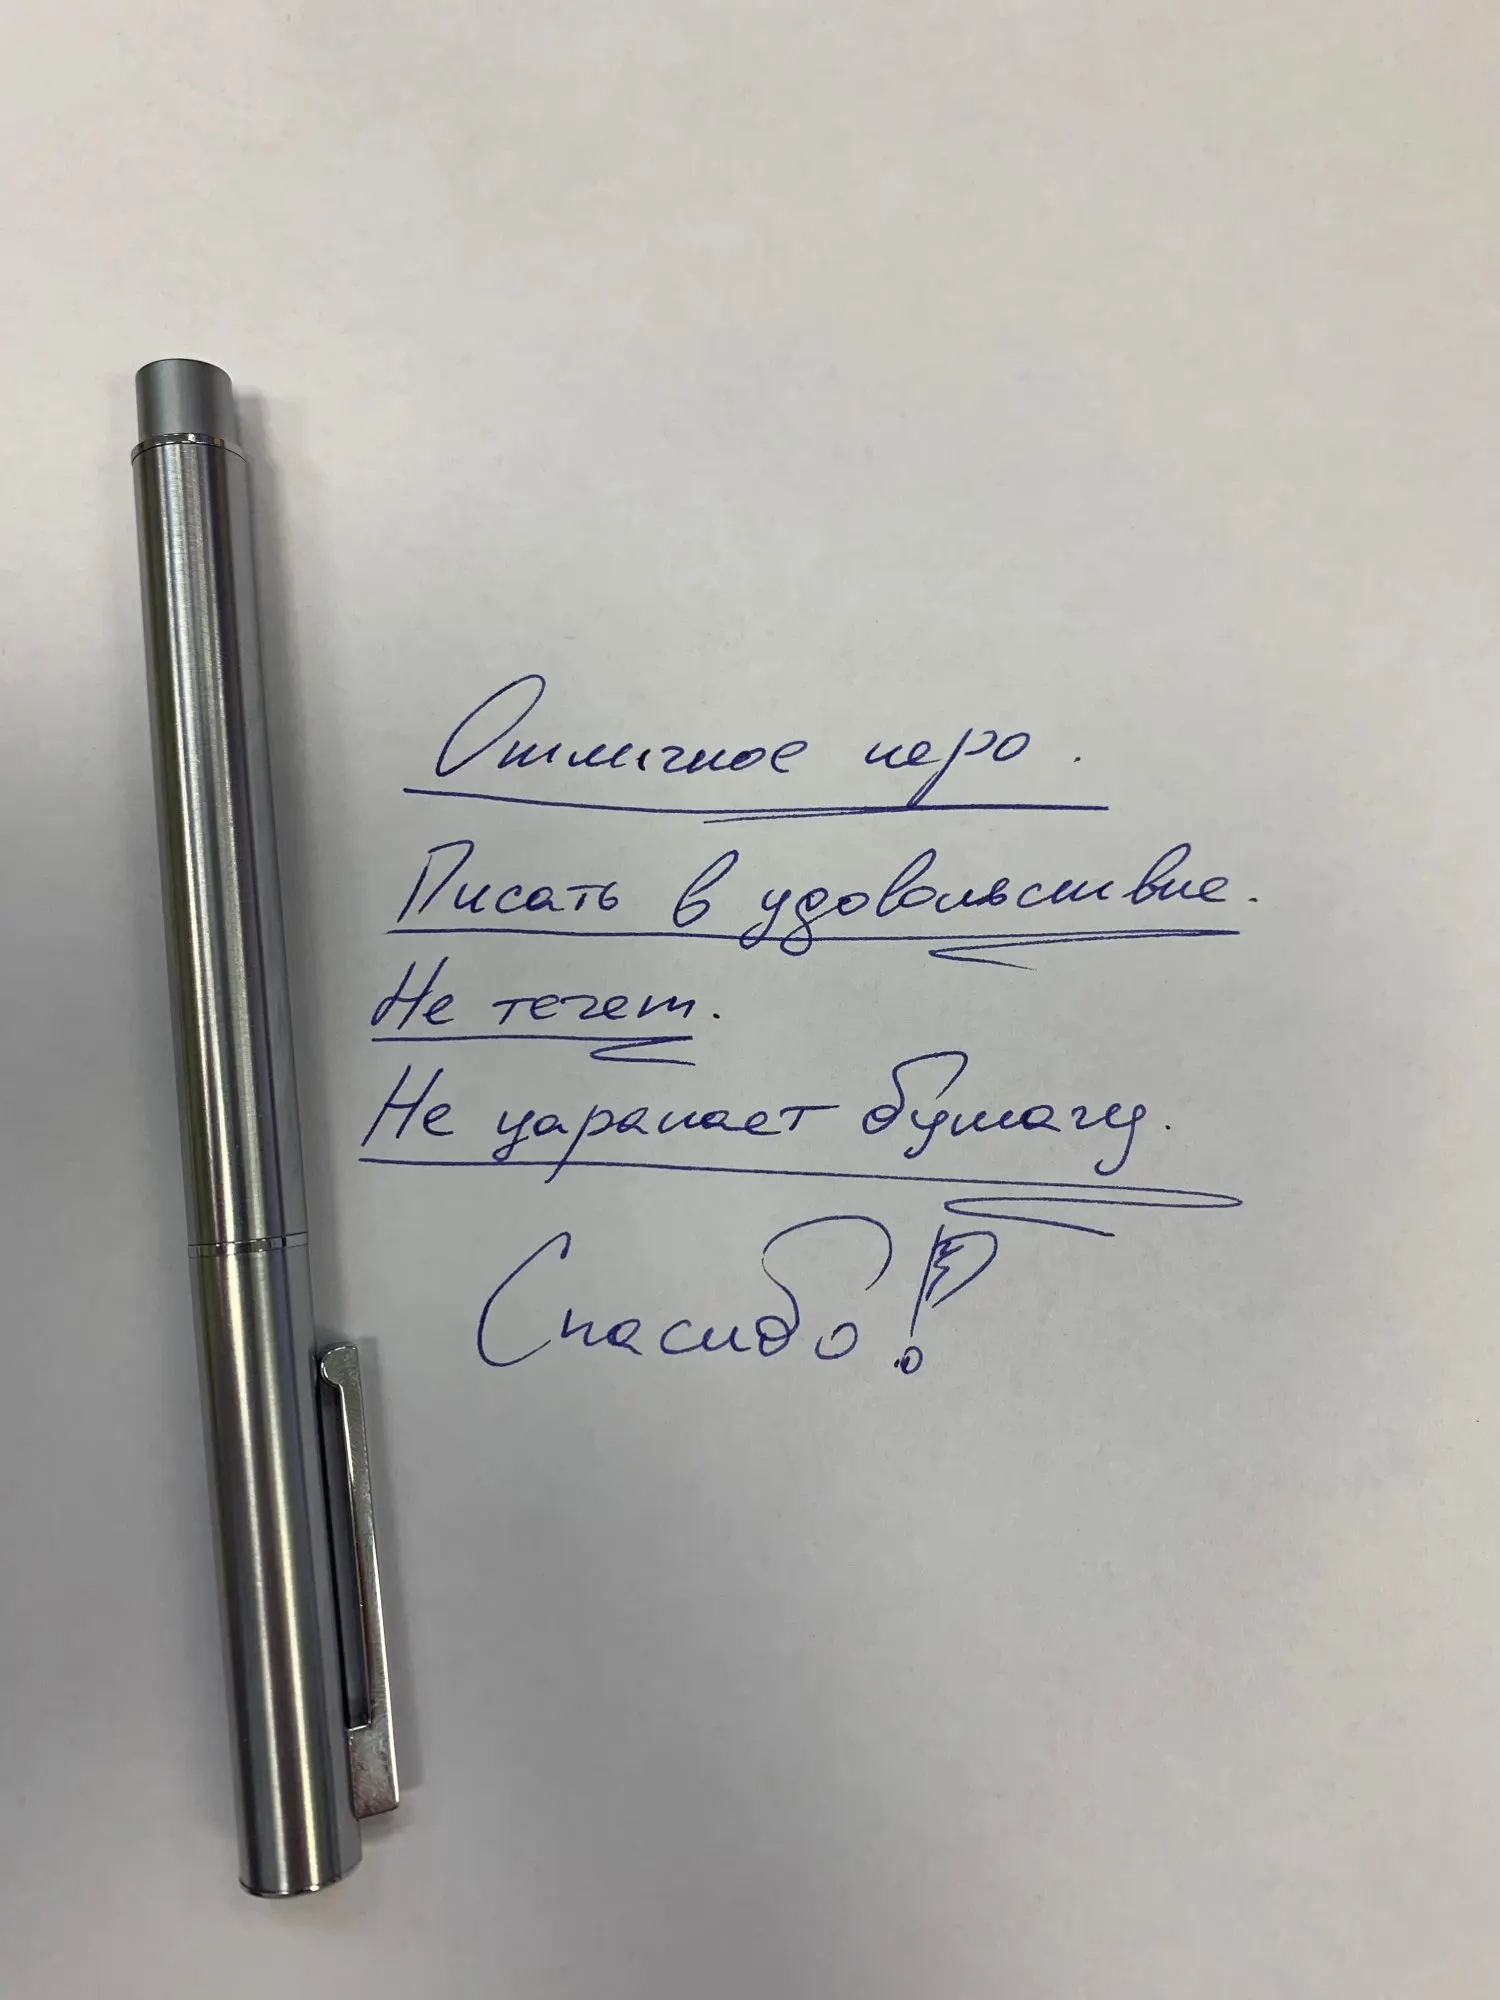 Отличное перо.
Писать в удовольствие.
Не течет.
Не царапает бумагу.
Спасибо!